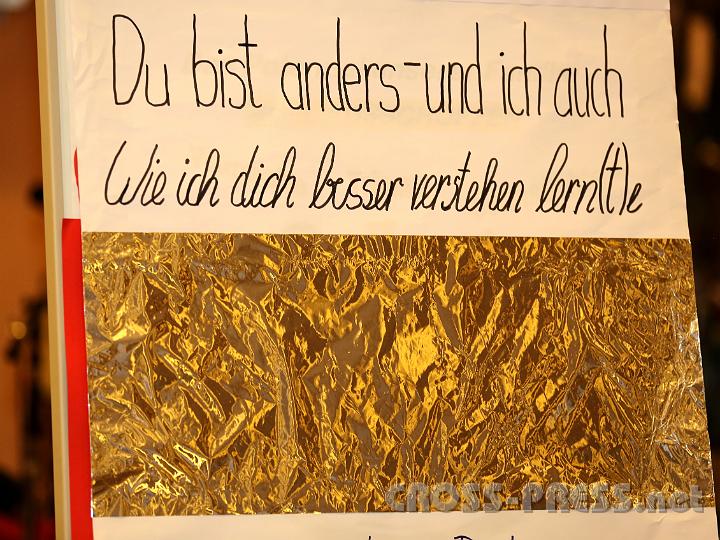 Du bist anders - und ich auch
Wie ich dich besser verstehen lern(t)e
CROSS-PRESS.net